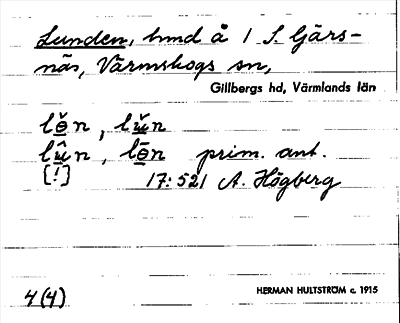 Lunden, hmd å 1 S. Gärs-
näs, Värmskogs sn,
Gillbergs hd, Värmlands län
lŏ̱n, lŭ̱n
lû̱n, lō̱n prim. ant.
[!] 17:521 A. Högberg
4(4) HERMAN HULTSTRÖM c. 1915